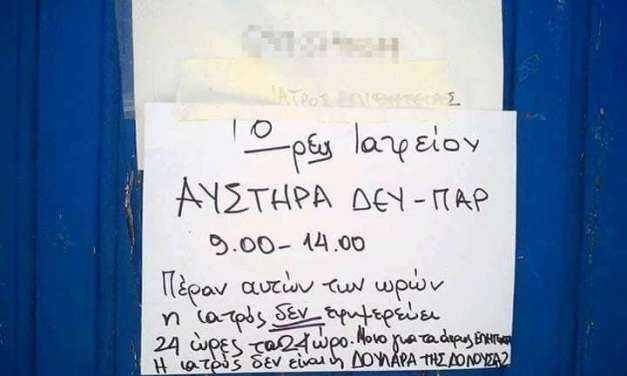 ΙΑΤΡΟΣ ΕΠΙ ΘΗΤΕΙΑΣ
Ώρες Ιατρείου
ΑΥΣΤΗΡΑ ΔΕΥ - ΠΑΡ
9.00 - 14.00
Πέραν αυτών των ωρών
η ιατρός δεν εφημερεύει
24 ώρες το 24ώρο. Μόνο για τα άκρως ΕΠΕΙΓΟΝΤΑ
Η ιατρός δεν είναι η ΔΟΥΛΑΡΑ ΤΗΣ ΔΟΝΟΥΣΑΣ